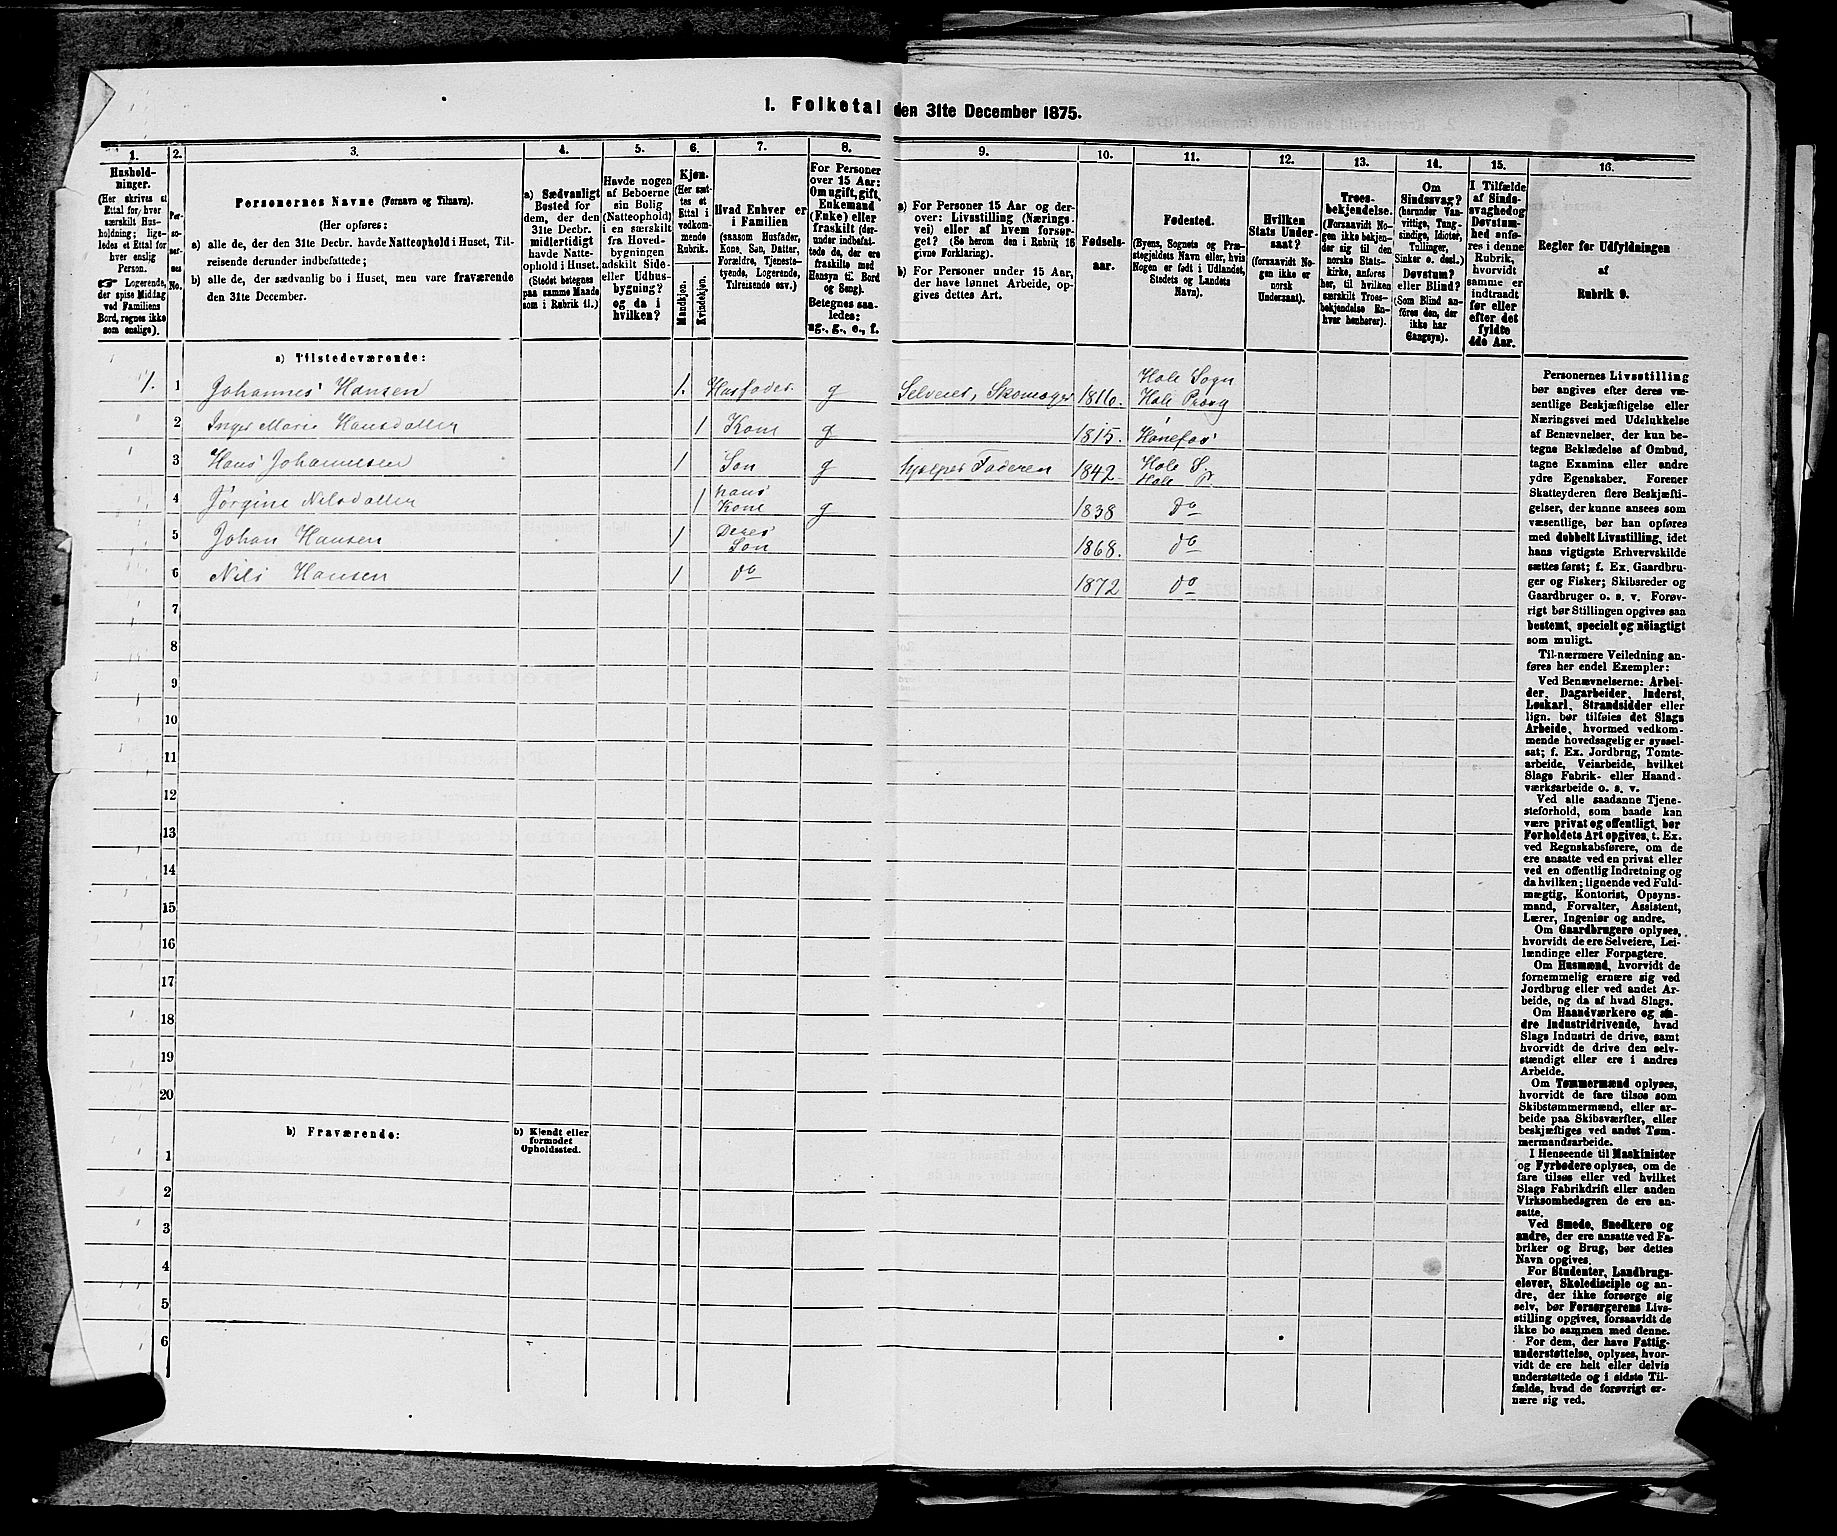 1. Folketal den 31te December 1875.
1. 2. 3. 4. 5. 6. 7. 8. 9. 10. 11. 12. 13. 14. 15. 16.
Hushold-
ninger.
(Her skrives et
Ettal for hver
særskilt Hus-
holdning; lige-
ledes et Ettal for
hver enslig
Person.
☞ Logerende,
der spise Middag
ved Familiens
Bord, regnes ikke
som enslige).
Per-
so-
ner-
nes
No.
Personernes Navne (Fornavn og Tilnavn).
(Her opføres:
a) alle de, der den 31te Decbr. havde Natteophold i Huset, Til-
reisende derunder indbefattede;
b) alle de, der sædvanlig bo i Huset, men vare fraværende
den 31te December.
a) Sædvanligt
Bosted for
dem, der den
31te Decbr.
midlertidigt
havde Natte-
ophold i Huset.
(Stedet betegnes
paa samme Maade
som i Rubrik 11.)
Havde nogen
af Beboerne
sin Bolig
(Natteophold)
i en særskilt
fra Hoved-
bygningen
adskilt Side-
eller Udhus-
bygning?
og da i
hvilken?
Kjøn.
(Her sæt-
tes et
Ettal i
vedkom-
mende
Rubrik.
Mandkjøn.
Kvindekjøn.
Hvad Enhver er
i Familien
(saasom Husfader,
Kone, Søn, Datter,
Forældre, Tjeneste-
tyende, Logerende,
Tilreisende osv.)
For Personer
over 15 Aar:
Om ugift, gift,
Enkemand
(Enke) eller
fraskilt (der-
under indbefat-
tede de, der ere
fraskilte med
Hensyn til Bord
og Seng).
Betegnes saa-
ledes:
ug., g., e., f.
a) For Personer 15 Aar og der-
over: Livsstilling (Nærings-
vei) eller af hvem forsør-
get? (Se herom den i Rubrik 16
givne Forklaring).
b) For Personer under 15 Aar,
der have lønnet Arbeide, op-
gives dettes Art.
Fødsels-
aar.
Fødested.
(Byens, Sognets og Præ-
stegjeldets Navn eller, hvis
Nogen er født i Udlandet,
Stedets og Landets
Navn).
Hvilken
Stats Under-
saat?
(forsaavidt No-
gen ikke er
norsk
Undersaat).
Troes-
bekjendelse.
(Forsaavidt No-
gen ikke bekjen-
der sig til den
norske Stats-
kirke, anføres
her, til hvilken
særskilt Troes-
bekjendelse En-
hver henhører).
Om
Sindssvag?
(herunder Van-
vittige, Tung-
sindige, Idioter,
Tullinger,
Sinker o. desl.)
Døvstum?
eller Blind?
(Som Blind an-
føres den, der
ikke har
Gangsyn).
I Tilfælde
af Sinds-
svaghed og
Døvstum-
hed anfø-
res i denne
Rubrik,
hvorvidt
samme er
indtraadt
før eller
efter det
fyldte
4de Aar.
Regler for Udfyldningen
af
Rubrik 9.
a) Tilstedeværende:
1. 1 Johannes Hansen 1. Husfader g Selveier, Skomager 1816. Hole Sogn Hole Præstg
2 Inger Marie Hansdatter 1 Kone g 1815. Hønefos
3 Hans Johannesen 1 Søn g hjelper Faderen 1842. Hole S. Hole Pr
4 Jørgine Nilsdatter 1 hans Kone g 1838 do
5 Johan Hansen 1 Deres Søn 1868. do
6 Nils Hansen 1 do 1872 do
7
8
9
10
11
12
13
14
15
16
17
18
19
20
b) Fraværende:
b) Kjendt eller
formodet
Opholdssted.
1
2
3
4
5
6
Personernes Livsstilling
bør angives efter deres væ-
sentlige Beskjæftigelse eller
Næringsvei med Udelukkelse
af Benævnelser, der kun be-
tegne Beklædelse af Ombud,
tagne Examina eller andre
ydre Egenskaber. Forener
Skatteyderen flere Beskjæfti-
gelser, der kunne ansees som
væsentlige, bør han opføres
med dobbelt Livsstilling, idet
hans vigtigste Erhvervskilde
sættes først; f. Ex. Gaardbru-
ger og Fisker; Skibsreder og
Gaardbruger o. s. v. Forøv-
rigt bør Stillingen opgives saa
bestemt, specielt og nøiagtigt
som muligt.
Til nærmere Veiledning an-
føres her endel Exempler:
Ved Benævnelserne: Arbei-
der, Dagarbeider, Inderst,
Løskarl, Strandsidder eller
lign. bør tilføies det Slags
Arbeide, hvormed vedkom-
mende hovedsagelig er syssel-
sat; f. Ex. Jordbrug, Tomte-
arbeide, Veiarbeide, hvilket
Slags Fabrik- eller Haand-
værksarbeide o. s. v.
Ved alle saadanne Tjene-
steforhold, som baade kan
være privat og offentligt, bør
Forholdets Art opgives, t. Ex.
ved Regnskabsførere, om de
ere ansatte ved en privat eller
ved en offentlig Indretning og
da hvilken; lignende ved Fuld-
mægtig, Kontorist, Opsyns-
mand, Forvalter, Assistent,
Lærer, Ingeniør og andre.
Om Gaardbrugere oplyses,
hvorvidt de ere Selveiere, Lei-
lændinge eller Forpagtere.
Om Husmænd, hvorvidt de
fornemmelig ernære sig ved
Jordbrug eller ved andet Ar-
beide, og da af hvad Slags.
Om Haandværkere og an-
dre Industridrivende, hvad
Slags Industri de drive, samt
hvorvidt de drive den selv-
stændigt eller ere i andres
Arbeide.
Om Tømmermænd oplyses,
hvorvidt de fare tilsøs som
Skibstømmermænd, eller ar-
beide paa Skibsværfter, eller
beskjæftiges ved andet Tøm-
mermandsarbeide.
I Henseende til Maskinister
og Fyrbødere oplyses, om de
fare tilsøs eller ved hvilket
Slags Fabrikdrift eller anden
Virksomhedsgren de ere an-
satte.
Ved Smede, Snedkere og
andre, der ere ansatte ved Fa-
briker og Brug, bør dettes
Navn opgives.
For Studenter, Landbrugs-
elever, Skoledisciple og an-
dre, der ikke forsørge sig
selv, bør Forsørgerens Livs-
stilling opgives, forsaavidt de
ikke bo sammen med denne.
For dem, der have Fattig-
understøttelse, oplyses, hvor-
vidt de ere helt eller delvis
understøttede og i sidste Til-
fælde, hvad de forøvrigt er-
nære sig ved.